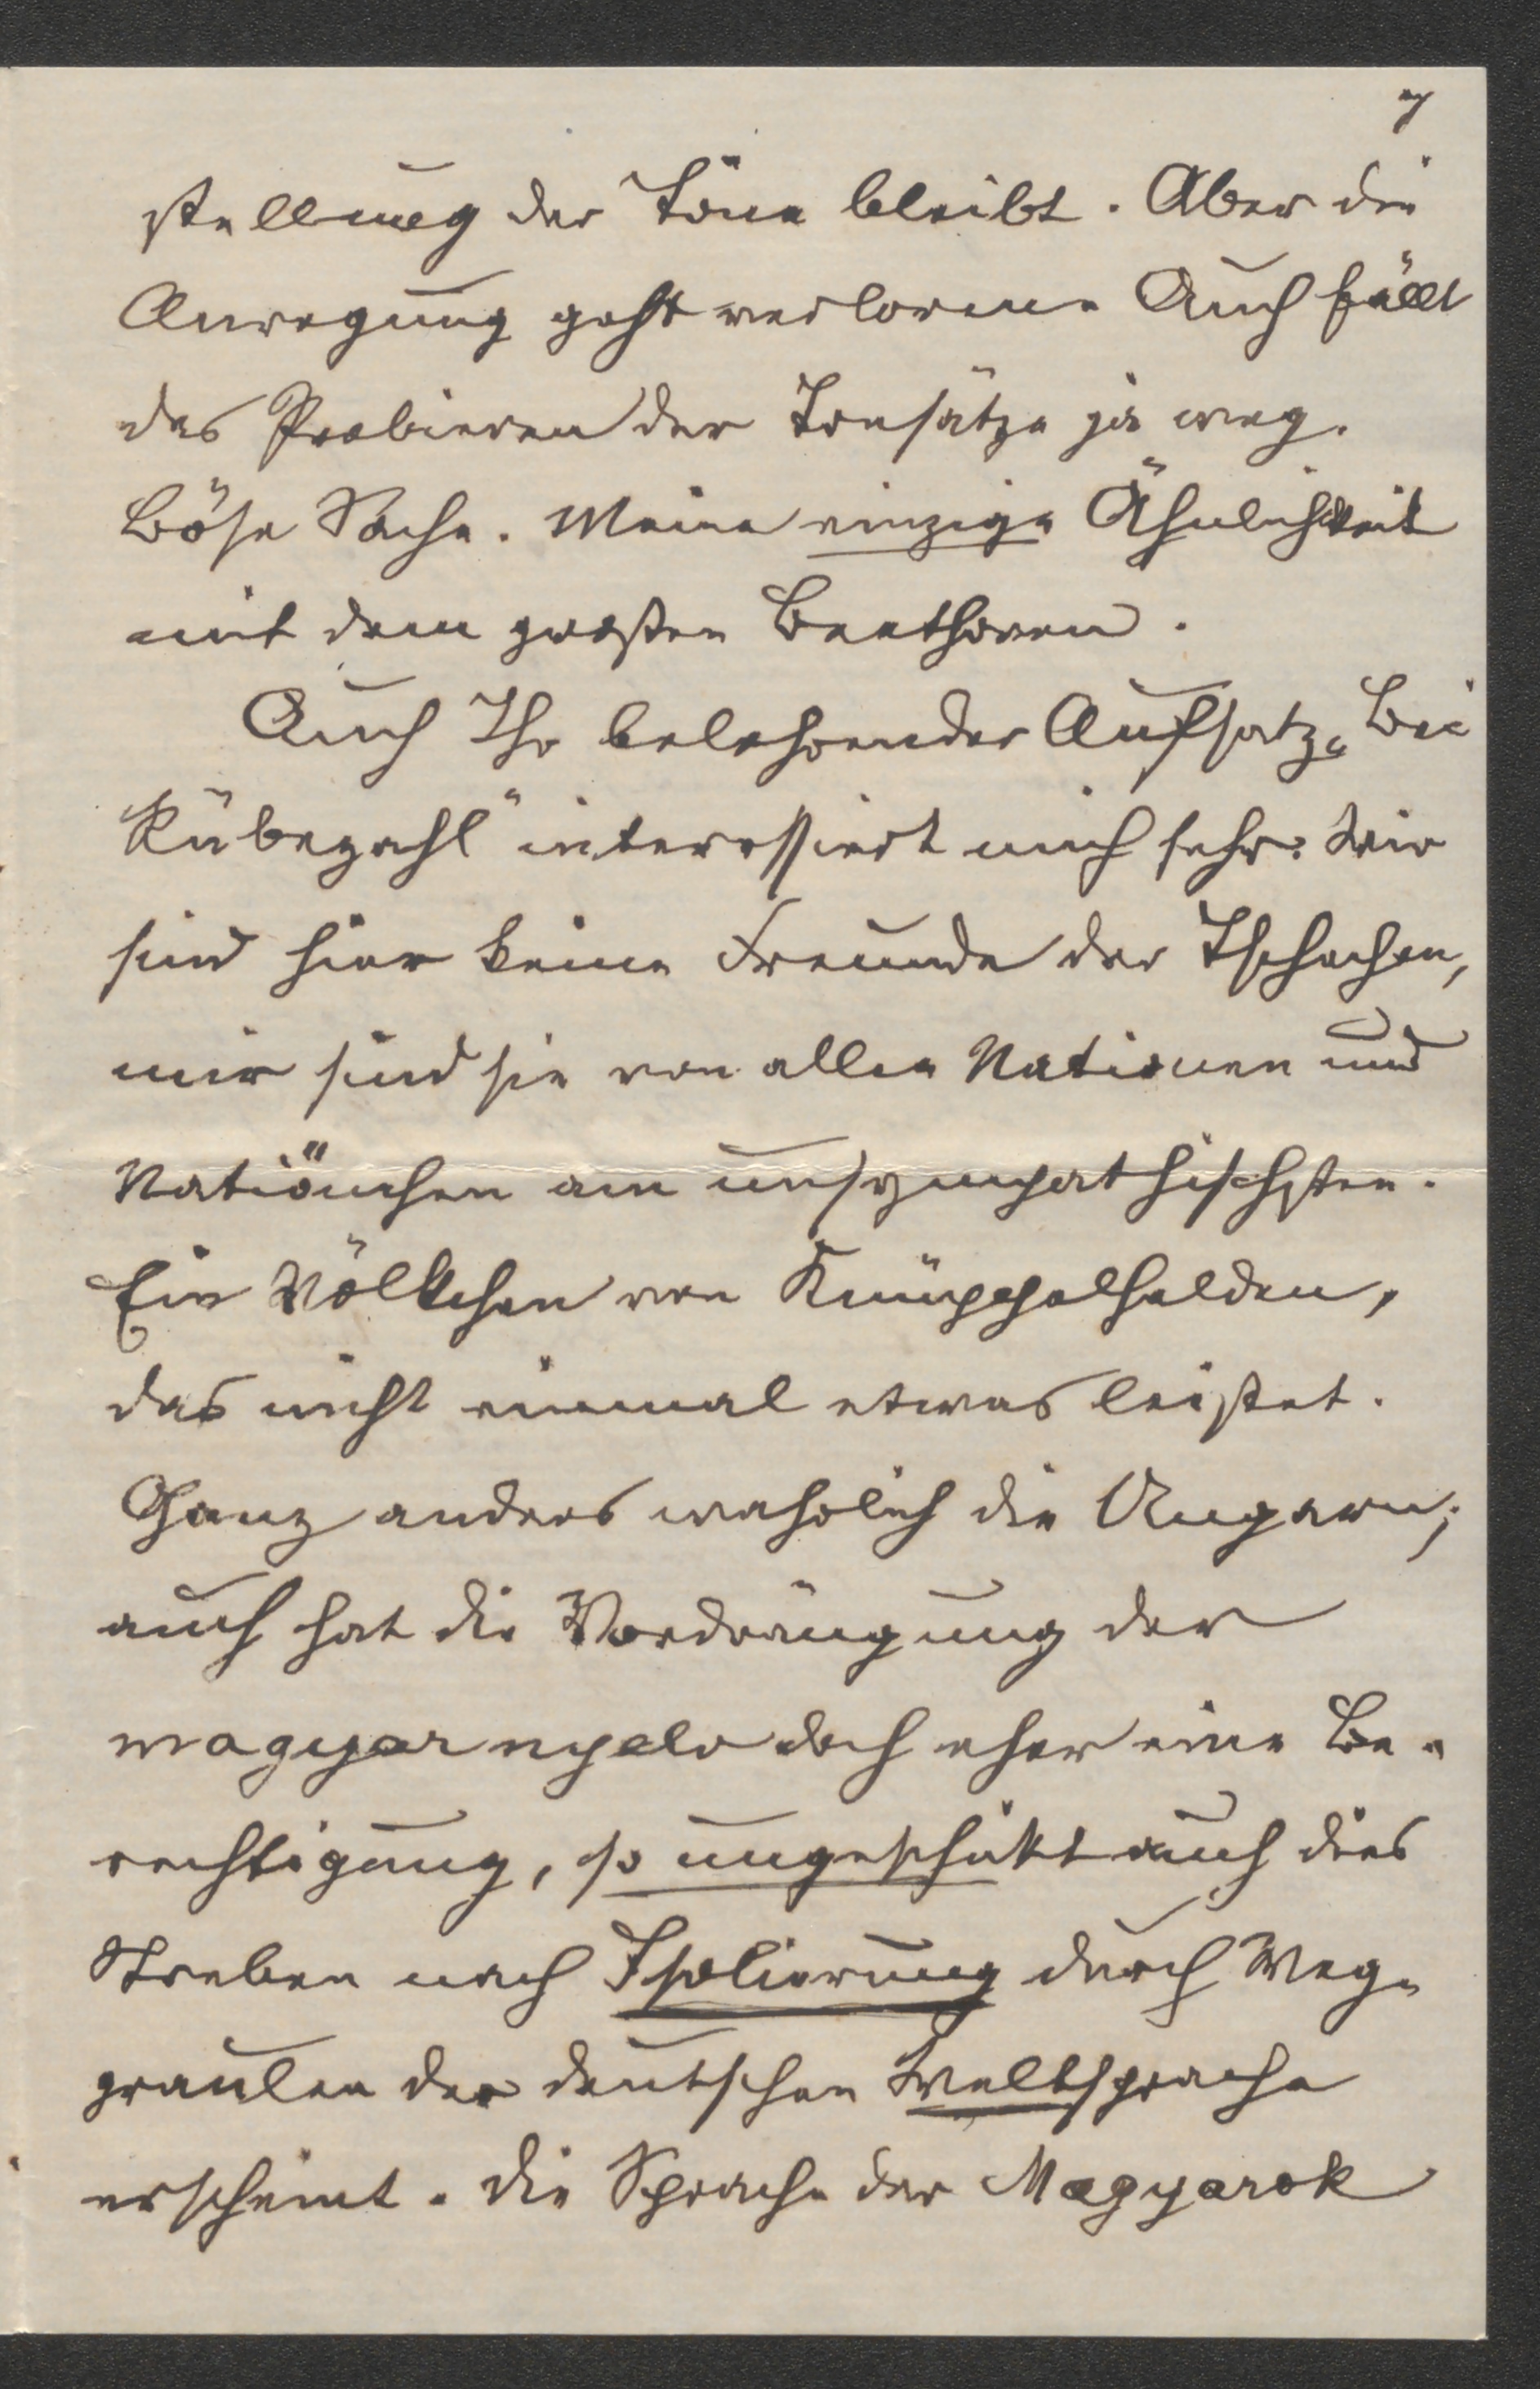 7
stellung der Töne bleibt. Aber die
Anregung geht verloren. Auch fällt
das Probieren der Tonsätze ja weg.
Böse Sache. Meine einzige Ähnlichkeit
mit dem großen Beethoven.
Auch Ihr belehrender Aufsatz „Bei
Rübezahl" interessiert mich sehr. Wir
sind hier keine Freunde der Tschechen,
mir sind sie von allen Nationen und
Natiönchen am unsympathischsten.
Ein Völkchen von Knüppelhelden,
das nicht einmal etwas leistet.
Ganz anders wahrlich die Ungarn;
auch hat die Vordrängung der
magyar nyelv doch eher eine Be-
rechtigung, so ungeschickt auch dies
Streben nach Isolierung durch Weg-
graulen der deutschen Weltsprache
erscheint. Die Sprache der Magyarok